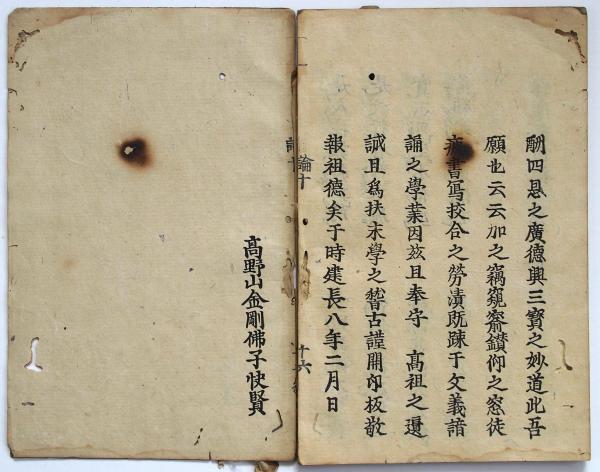 酬四恩之廣德興三寶之妙道此吾
願也云云加之竊窺齋鑚仰之窓徒
書寫挍合之勞漬既踈于文義諳
誦之學業因玆且奉守 高祖之遺
誡且爲扶末學之稽古謹開印板敬
報祖德矣于時建長八年二月日
論十
十六
高野山金剛佛子快賢